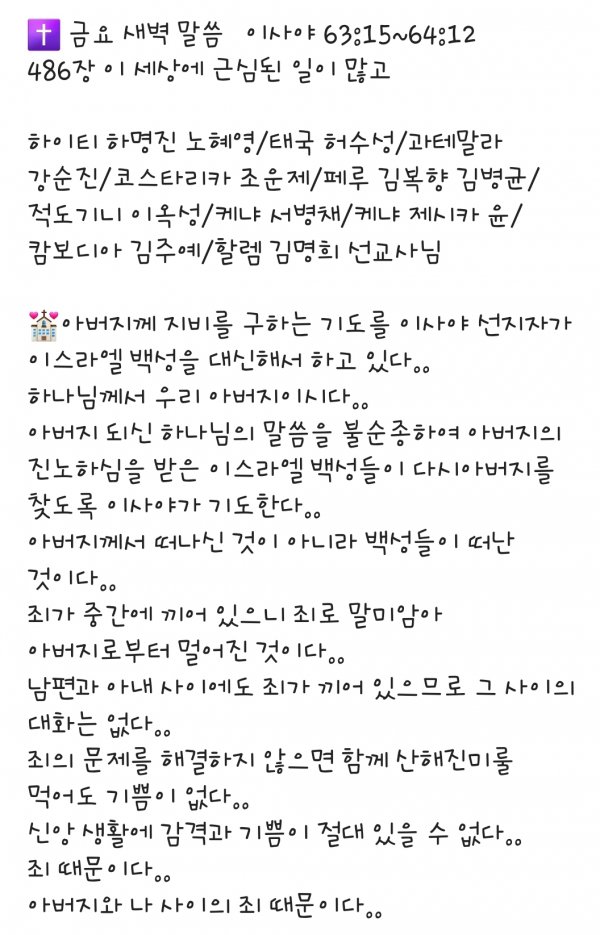 ✝️ 금요 새벽 말씀   이사야 63:15~64:12
486장 이 세상에 근심된 일이 많고
하이티 하명진 노혜영/태국 허수성/과테말라
강순진/코스타리카 조운제/페루 김복향 김병균/
적도기니 이옥성/케냐 서병채/케냐 제시카 윤/
캄보디아 김주예/할렘 김명희 선교사님
💒아버지께 지비를 구하는 기도를 이사야 선지자가
이스라엘 백성을 대신해서 하고 있다。。
하나님께서 우리 아버지이시다。。
아버지 되신 하나님의 말씀을 불순종하여 아버지의
진노하심을 받은 이스라엘 백성들이 다시아버지를
찾도록 이사야가 기도한다。。
아버지께서 떠나신 것이 아니라 백성들이 떠난
것이다。。
죄가 중간에 끼어 있으니 죄로 말미암아
아버지로부터 멀어진 것이다。。
남편과 아내 사이에도 죄가 끼어 있으므로 그 사이의
대화는 없다。。
죄의 문제를 해결하지 않으면 함께 산해진미룰
먹어도 기쁨이 없다。。
신앙 생활에 감격과 기쁨이 절대 있을 수 없다。。
죄 때문이다。。
아버지와 나 사이의 죄 때문이다。。